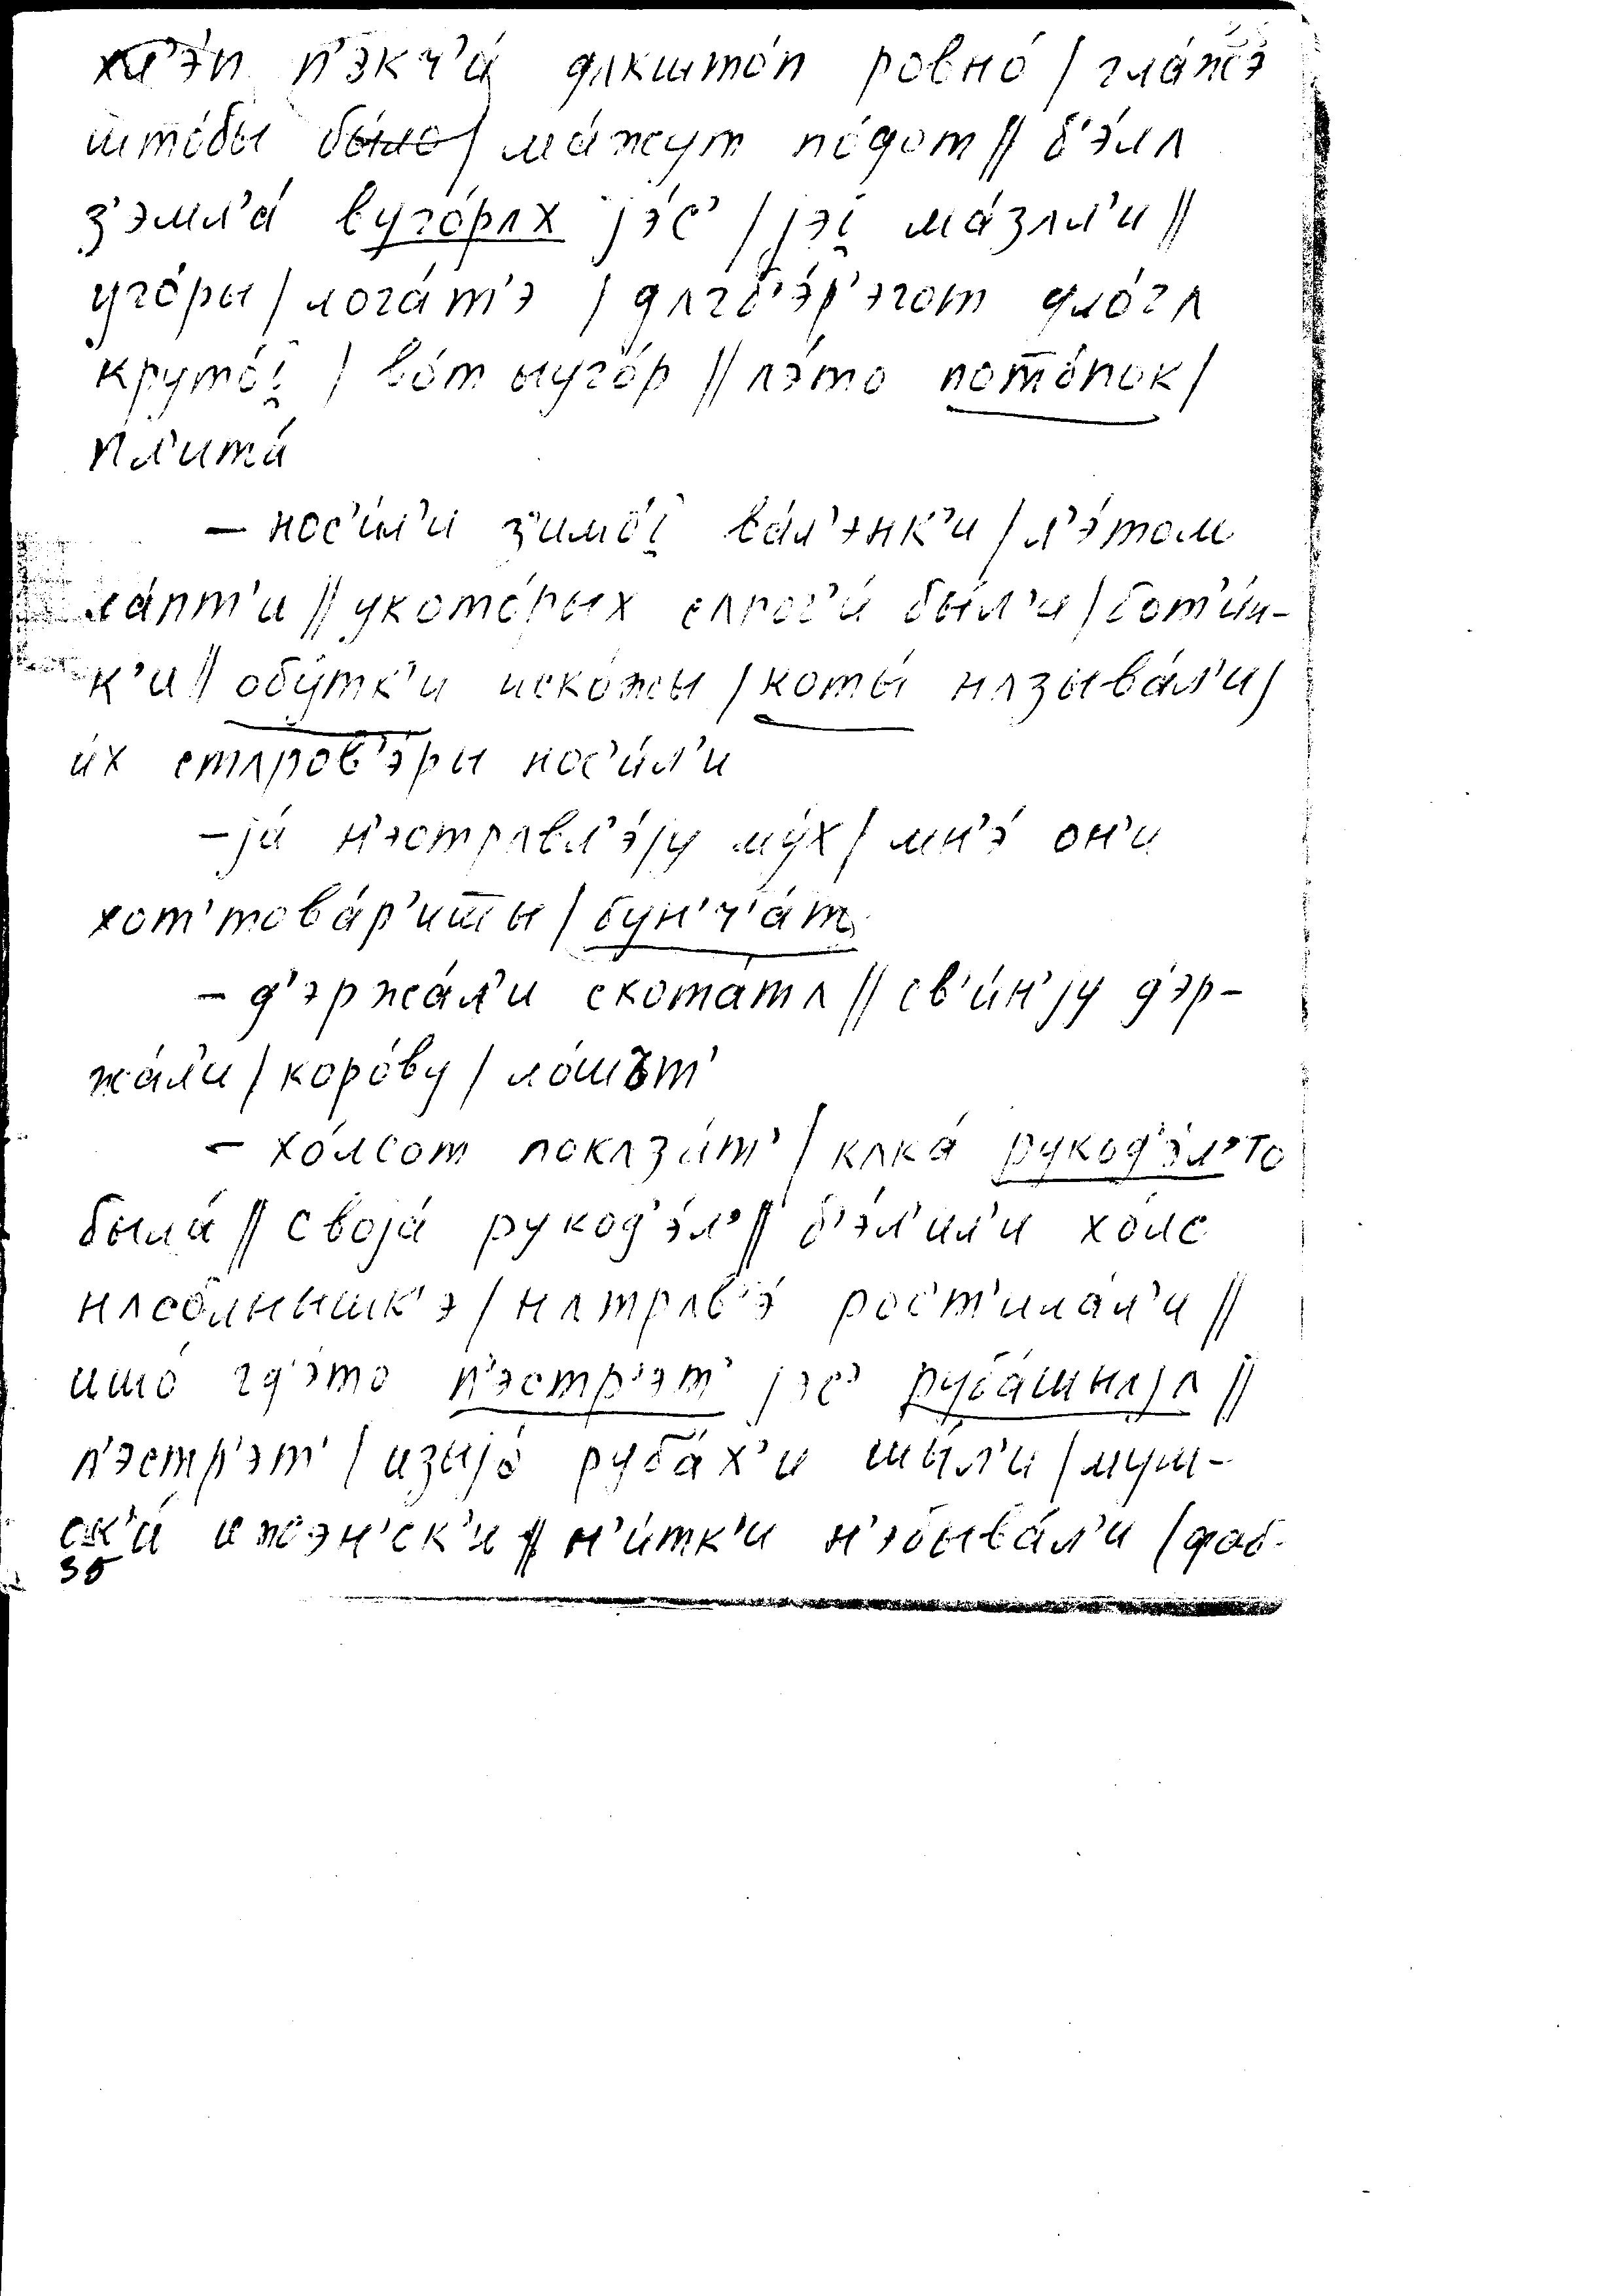 хл'э́п п'экч'а́ дʌкшто́п ровно́ / гла́жэ
што́бы бы́ло / ма́жут по́дот // б'э́лʌ
з'эмл'а́ вуго́рʌх јэ́с' / јэi̯ ма́зʌл'и //
уго́ры / лога́т'э / дʌгб'э́р'эгот дло́гʌ
круто́i̯ / во́т ыуго́р // ʌэ́то пото́пок /
пл'ита́
– нос'и́л'и з'имо́i̯ ва́л'энк'и / л'э́том
ла́пт'и // укото́рых сʌпог'и́ бы́л'и / бот'и́н-
к'и // обу́тк'и иско́жы / коты́ нʌзыва́л'и /
и́х стʌров'э́ры нос'и́л'и
– ја́ н'эотрʌвл'э́ју му́х / мн'э́ он'и
хот'това́р'ишы / бун'ч'а́т
– д'эржа́л'и скота́тʌ // св'и́н'ју д'эр-
жа́л'и / коро́ву / ло́шът'
– хо́лсот покʌза́т' / кʌка́ рукод'э́л'то
была́ // своја́ рукод'э́л' // б'эл'ил'и хо́лс
нʌсо́лнышк'э / нʌтрʌв'э́ рост'ила́л'и //
ишо́ гд'э́то п'эстр'эт' јэс' руба́шнʌјʌ //
п'эстр'эт' / изыјо́ руба́х'и шы́л'и / муш-
ск'и́ ижэн'ск'и // н'и́тк'и н'эбыва́л'и / фаб-
35